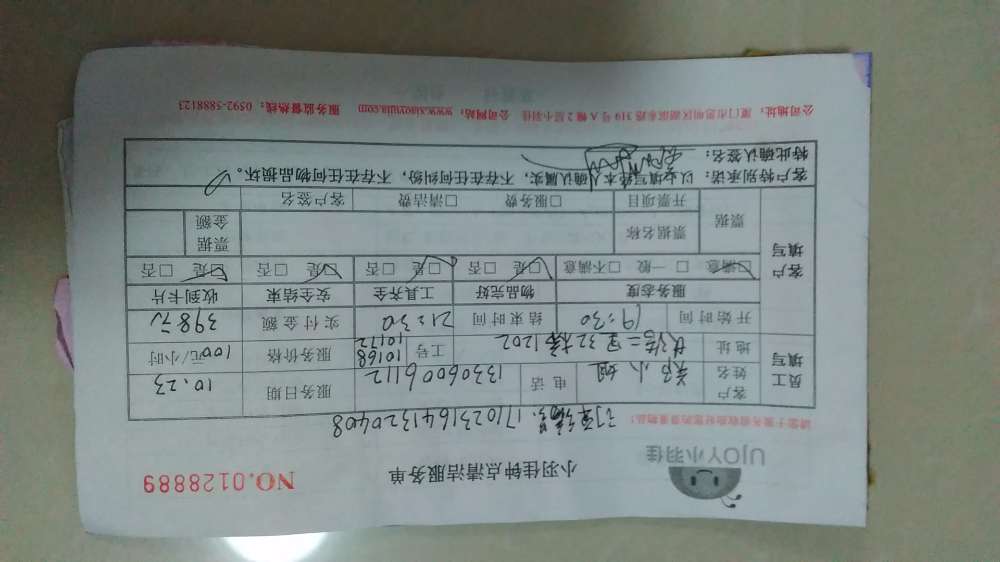 UJOY小羽佳
小羽佳钟点清洁服务单
NO.0128889
请您于服务前收拾好您的贵重物品!
订单编号:1710231641320408
员工填写
客户姓名 郭小姐 电话 13306006112 服务日期 10.23
地址 二里32栋1202 工号 10168 10172 服务价格 100元/小时
开始时间 19:30 结束时间 21:30 实付金额 398元
客户填写
服务态度 物品完好 工具齐全 安全结束 收到卡片
☑满意 □一般 □不满意 ☑是 □否 ☑是 □否 ☑是 □否 ☑是 □否
票据 票据名称 票据金额
开票项目 □服务费 □清洁费 客户签名
客户特别承诺:以上填写经本人确认属实,不存在任何纠纷,不存在任何物品损坏。
特此确认签名:
公司地址:厦门市思明区湖滨东路319号A幢2层小羽佳 公司网站:www.xiaoyujia.com 服务监督热线:0592-5888123